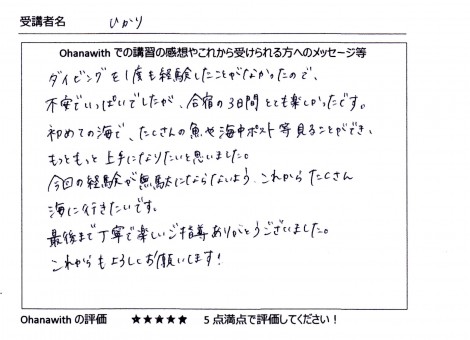 受講者名 ひかり
Ohanawith での講習の感想やこれから受けられる方へのメッセージ等
ダイビングを1度も経験したことがなかったので、
不安でいっぱいでしたが、合宿の3日間とても楽しかったです。
初めての海で、たくさんの魚や海中ポスト等見ることができ、
もっともっと上手になりたいと思いました。
今回の経験が無駄にならないよう、これからたくさん
海に行きたいです。
最後まで丁寧で楽しいご指導ありがとうございました。
これからもよろしくお願いします!
Ohanawith の評価 ★★★★★ 5点満点で評価してください!